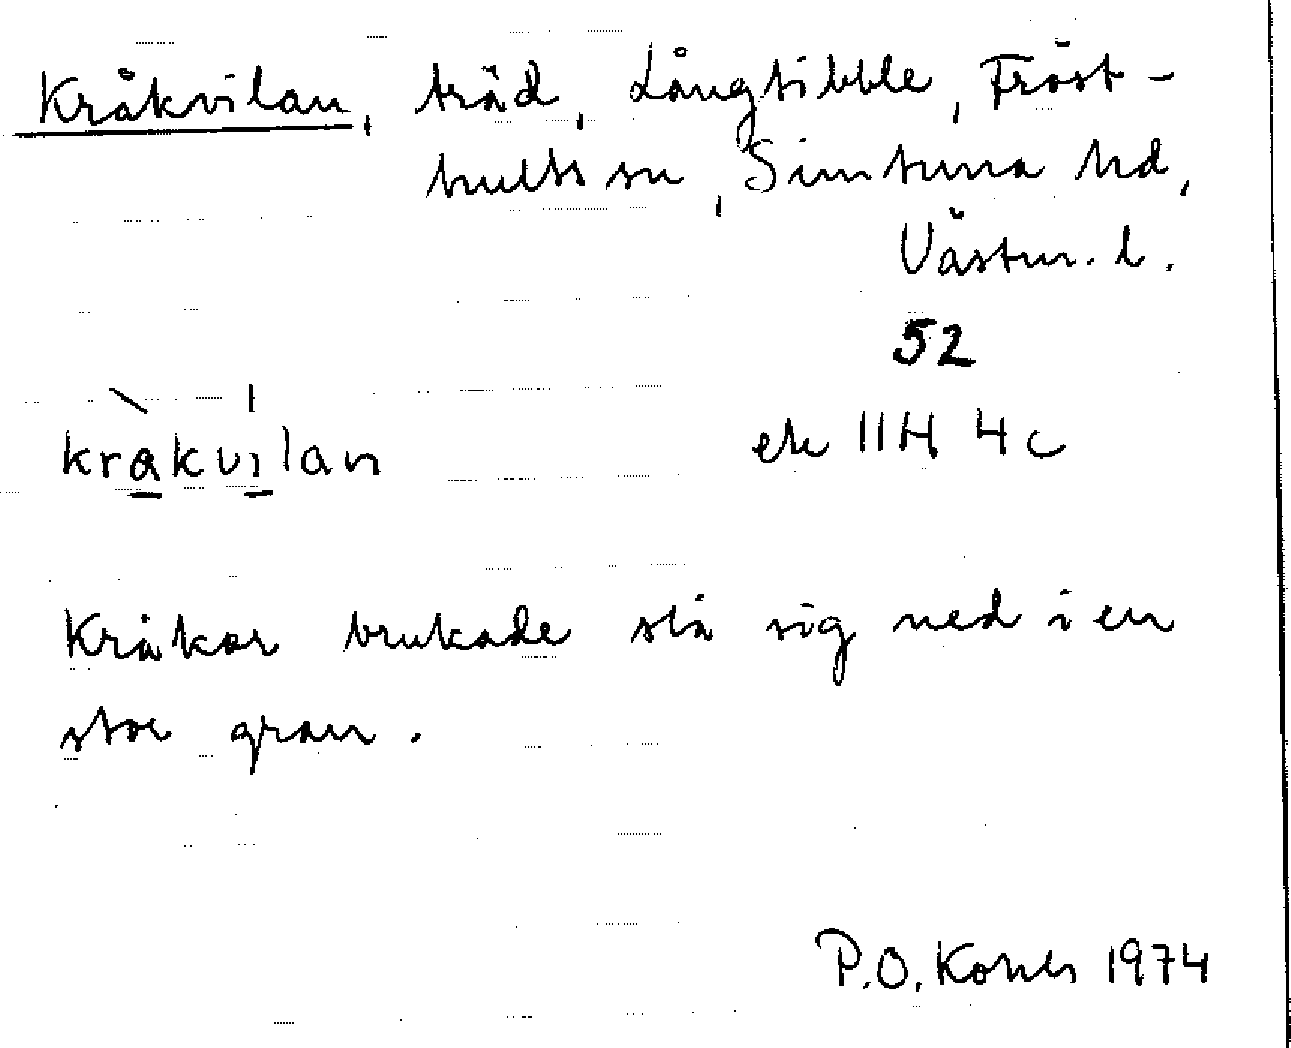 Kråkvilan, träd, Långtibble, Fröst-
hults sn, Simtuna hd,
Västm. l.
52
kråkvilan ek 11H 4c
Kråkor brukade slå sig ned i en
stor gran.
P.O. 1974